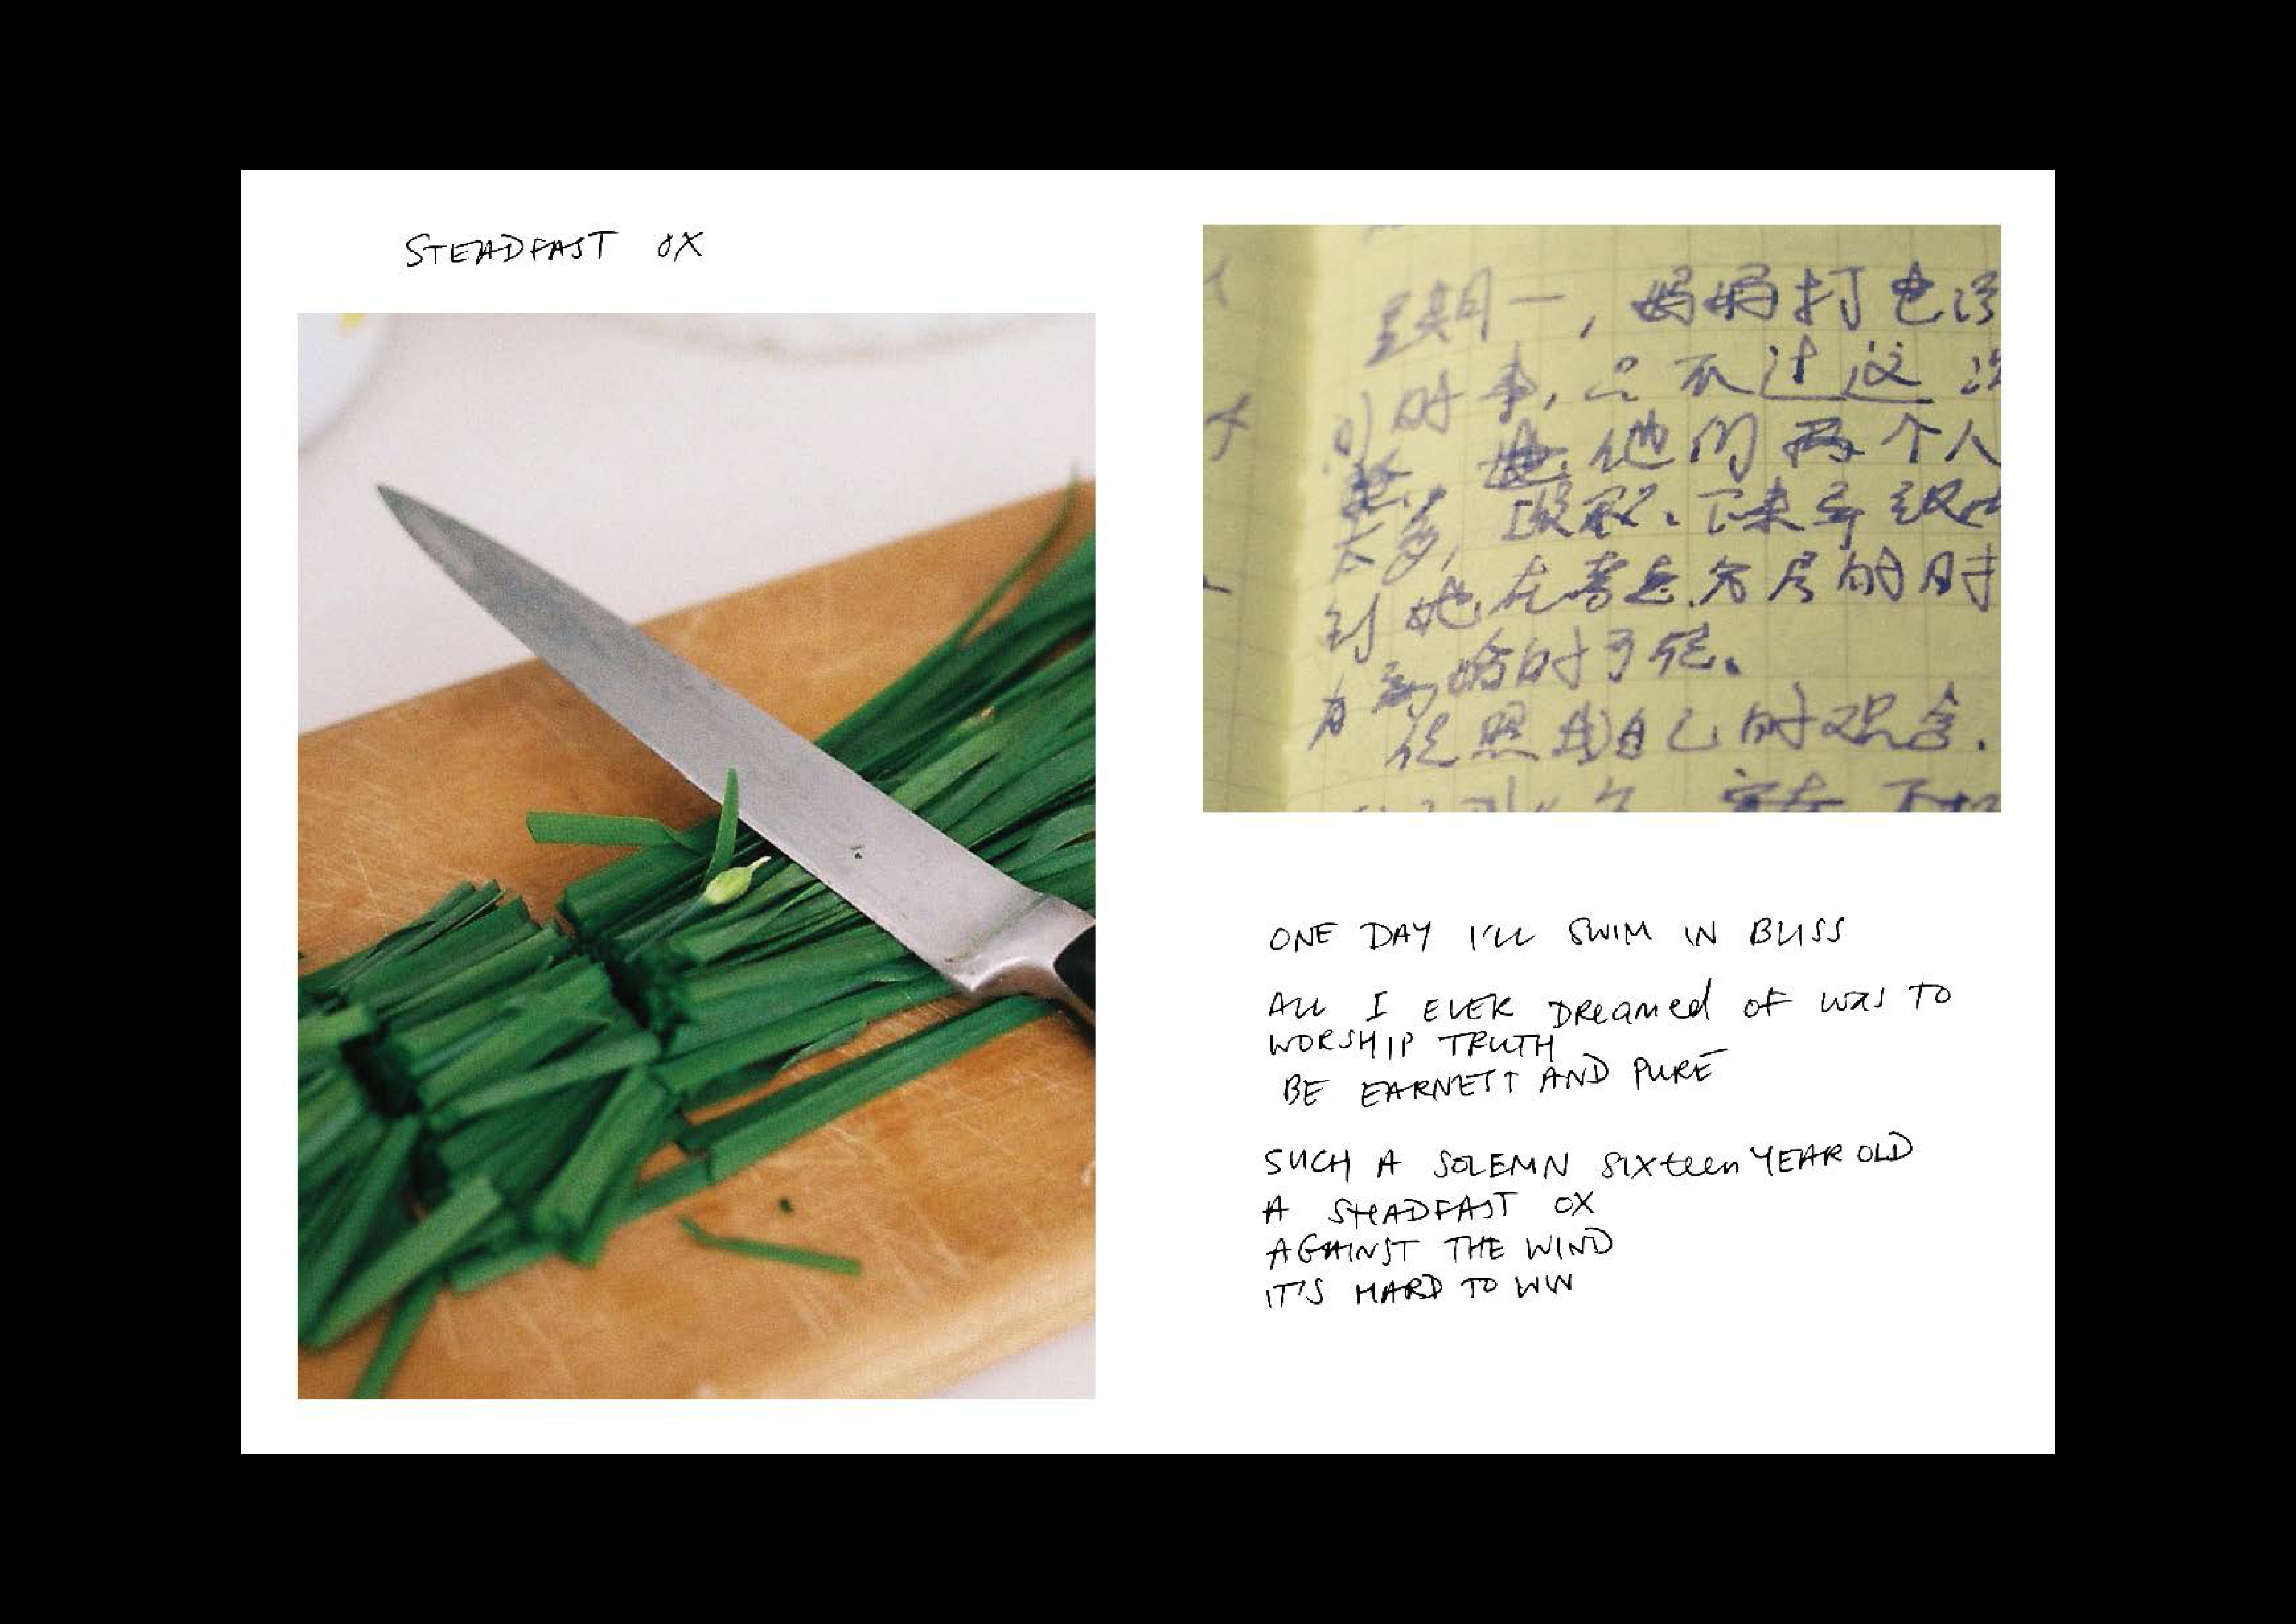 STEADFAST OX
星期一，妈妈打电话
的时事，只不过这次
他们两个人
太多，没取。下来年级
到她在考虑分居的时
有
依照我自己的观念．
实在不
ONE DAY I'LL SWIM IN BLISS
ALL I EVER DREAMED OF WAS TO
WORSHIP TRUTH
BE EARNEST AND PURE
SUCH A SOLEMN SIXTEEN YEAR OLD
A STEADFAST OX
AGAINST THE WIND
IT'S HARD TO WIN